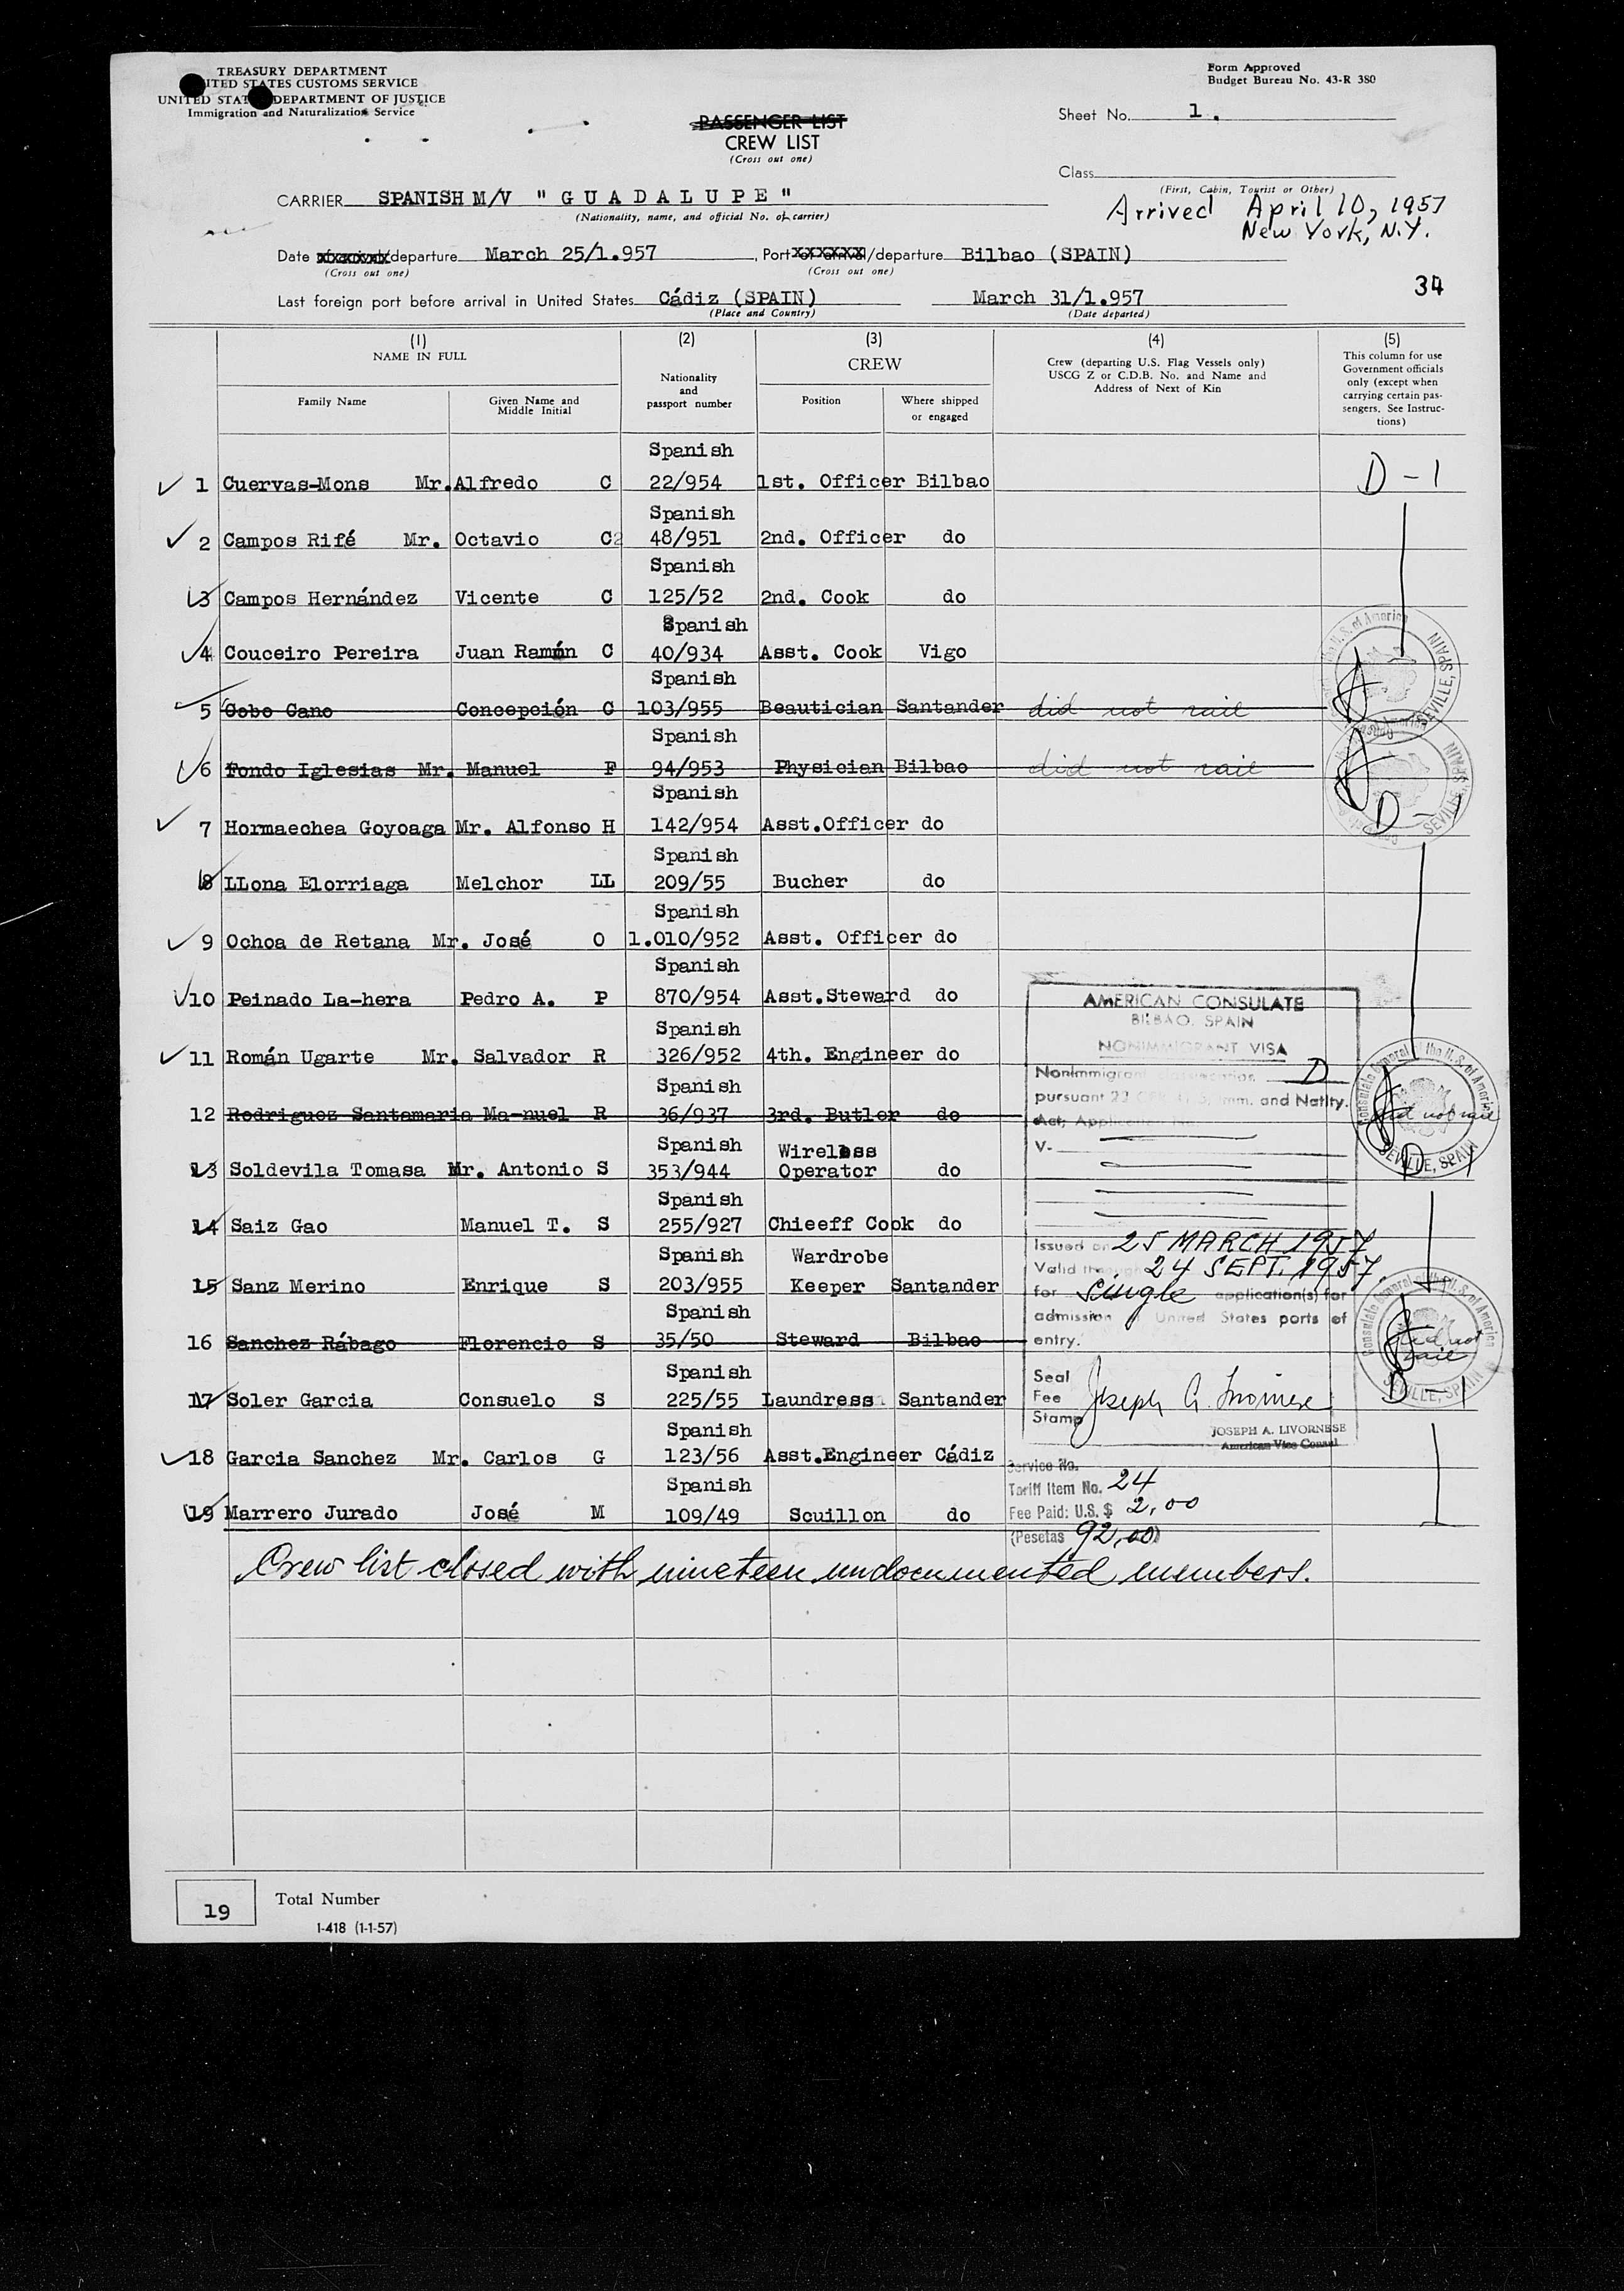 TREASURY DEPARTMENT
UNITED STATES CUSTOMS SERVICE
UNITED STATES DEPARTMENT OF JUSTICE
Immigration and Naturalization Service
Form Approved
Budget Bureau No. 43-R 380
Sheet No. 1.
PASSENGER LIST
CREW LIST
(Cross out one)
Class
(First, Cabin, Tourist or Other)
CARRIER SPANISH M/V "GUADALUPE"
(Nationality, name, and official No. of carrier)
Arrived April 10, 1957
New York, N.Y.
Date of arrival/departure March 25/1.957, Port of arrival/departure Bilbao (SPAIN)
(Cross out one) (Cross out one)
34
Last foreign port before arrival in United States Cádiz (SPAIN) March 31/1.957
(Place and Country) (Date departed)
(1) NAME IN FULL
Family Name
Given Name and Middle Initial
(2)
Nationality and passport number
(3)
CREW
Position
Where shipped or engaged
(4)
Crew (departing U.S. Flag Vessels only)
USCG Z or C.D.B. No. and Name and
Address of Next of Kin
(5)
This column for use
Government officials
only (except when
carrying certain pas-
sengers. See Instruc-
tions)
Spanish
1 Cuervas-Mons Mr. Alfredo C 22/954 1st. Officer Bilbao D-1
Spanish
2 Campos Rifé Mr. Octavio C 48/951 2nd. Officer do
Spanish
3 Campos Hernández Vicente C 125/52 2nd. Cook do
Spanish
4 Couceiro Pereira Juan Ramón C 40/934 Asst. Cook Vigo
Spanish
5 Cobo Cano Concepción C 103/955 Beautician Santander did not sail
Spanish
6 Fondo Iglesias Mr. Manuel F 94/953 Physician Bilbao did not sail
Spanish
7 Hormaechea Goyoaga Mr. Alfonso H 142/954 Asst.Officer do D-1
Spanish
8 LLona Elorriaga Melchor LL 209/55 Bucher do
Spanish
9 Ochoa de Retana Mr. José O 1.010/952 Asst. Officer do
Spanish
10 Peinado La-hera Pedro A. P 870/954 Asst.Steward do
Spanish
11 Román Ugarte Mr. Salvador R 326/952 4th. Engineer do
Spanish
12 Rodriguez Santamaria Ma-nuel R 36/937 3rd. Butler do did not sail
Spanish Wireless
13 Soldevila Tomasa Mr. Antonio S 353/944 Operator do D-1
Spanish
14 Saiz Gao Manuel T. S 255/927 Chieeff Cook do
Spanish Wardrobe
15 Sanz Merino Enrique S 203/955 Keeper Santander
Spanish
16 Sanchez Rábago Florencio S 35/50 Steward Bilbao did not sail
Spanish
17 Soler Garcia Consuelo S 225/55 Laundress Santander D-1
Spanish
18 Garcia Sanchez Mr. Carlos G 123/56 Asst.Engineer Cádiz
Spanish
19 Marrero Jurado José M 109/49 Scullion do
Crew list closed with nineteen undocumented members.
AMERICAN CONSULATE
BILBAO, SPAIN
NONIMMIGRANT VISA
Nonimmigrant classification D
pursuant 22 Imm. and Natlty.
Act; Application No.
V-
Issued on 25 MARCH 1957
Valid through 24 SEPT. 1957.
for single application(s) for
admission United States ports of
entry.
Seal
Fee
Stamp
JOSEPH A. LIVORNESE
American Vice Consul
Service No.
Tariff Item No. 24
Fee Paid: U.S. $ 2,00
(Pesetas 92,00)
Consulate General of the U. S. of America
SEVILLE, SPAIN
Consulate General of the U. S. of America
SEVILLE, SPAIN
Consulate General of the U. S. of America
SEVILLE, SPAIN
Consulate General of the U. S. of America
SEVILLE, SPAIN
19 Total Number
I-418 (1-1-57)